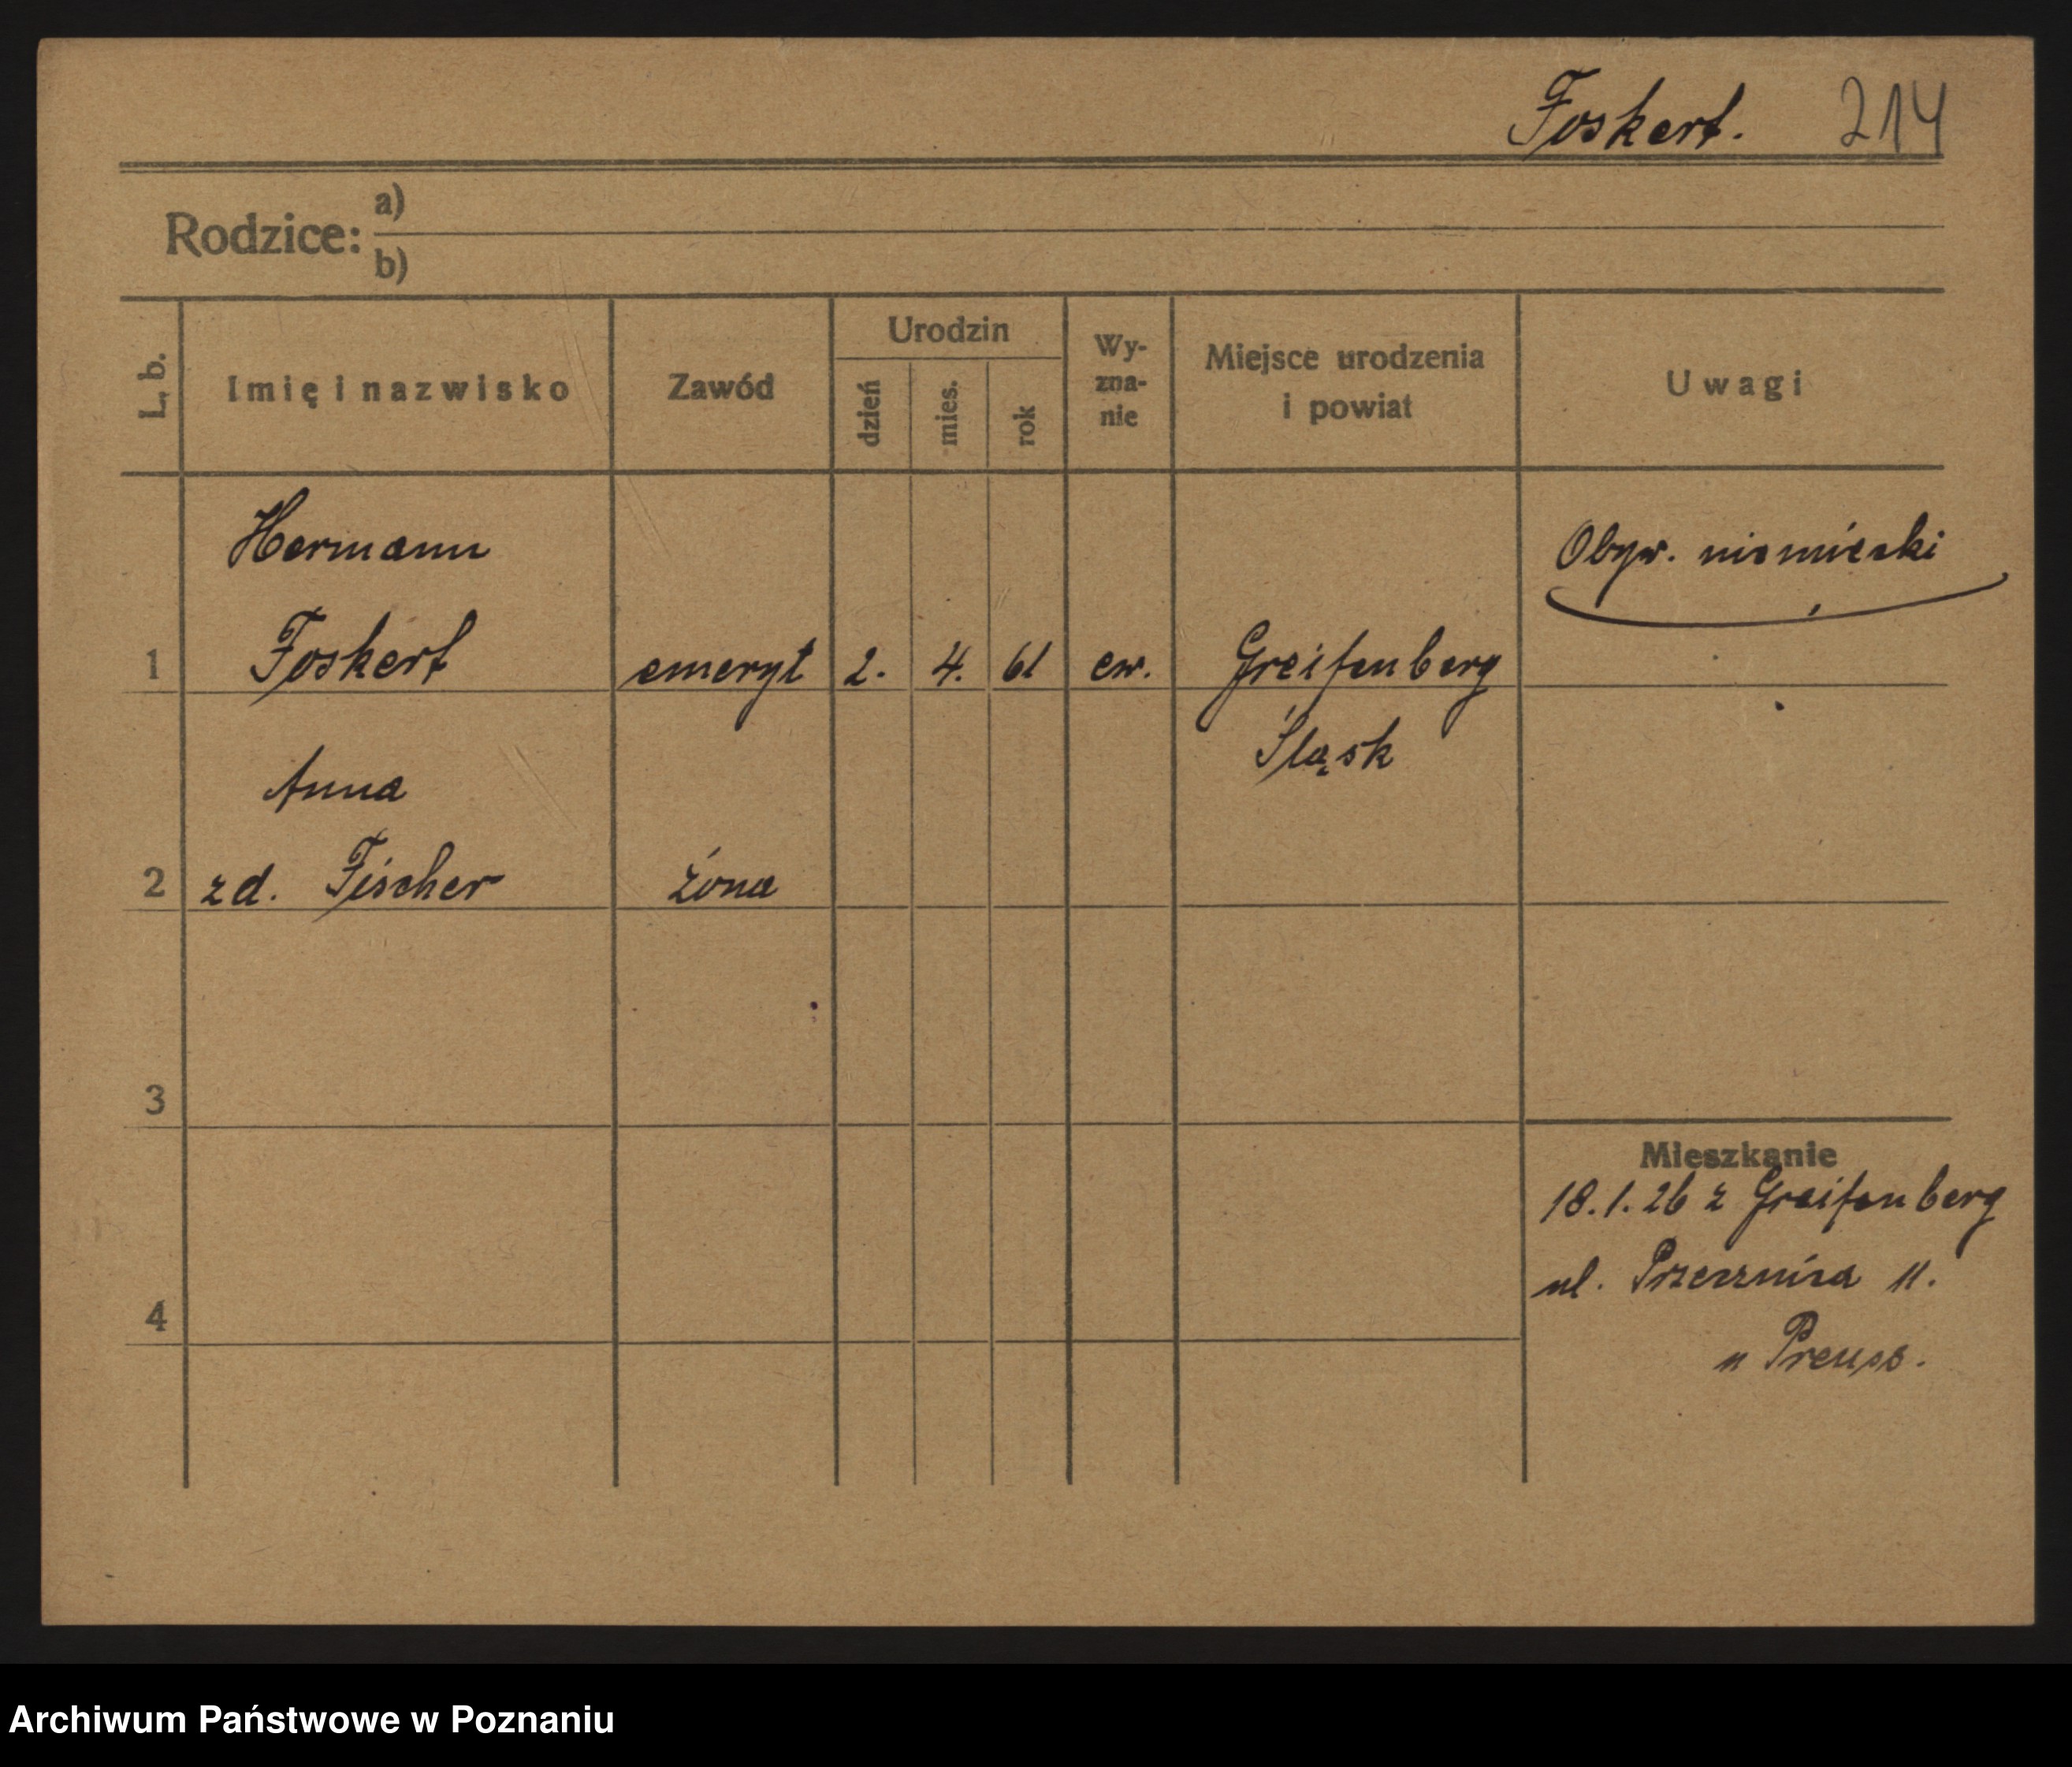 Foskert. 214
Rodzice: a)
b)
L. b.
Imię i nazwisko
Zawód
Urodzin
dzień
mies.
rok
Wy-
zna-
nie
Miejsce urodzenia
i powiat
Uwagi
Hermann
Obyw. niemiecki
1 Foskert emeryt 2. 4. 61 ew. Greifenberg
Śląsk
Anna
2 zd. Fischer żona
3
Mieszkanie
18.1.26 z Greifenberg
ul. Przecznica 11.
4
u Preuss.
Archiwum Państwowe w Poznaniu